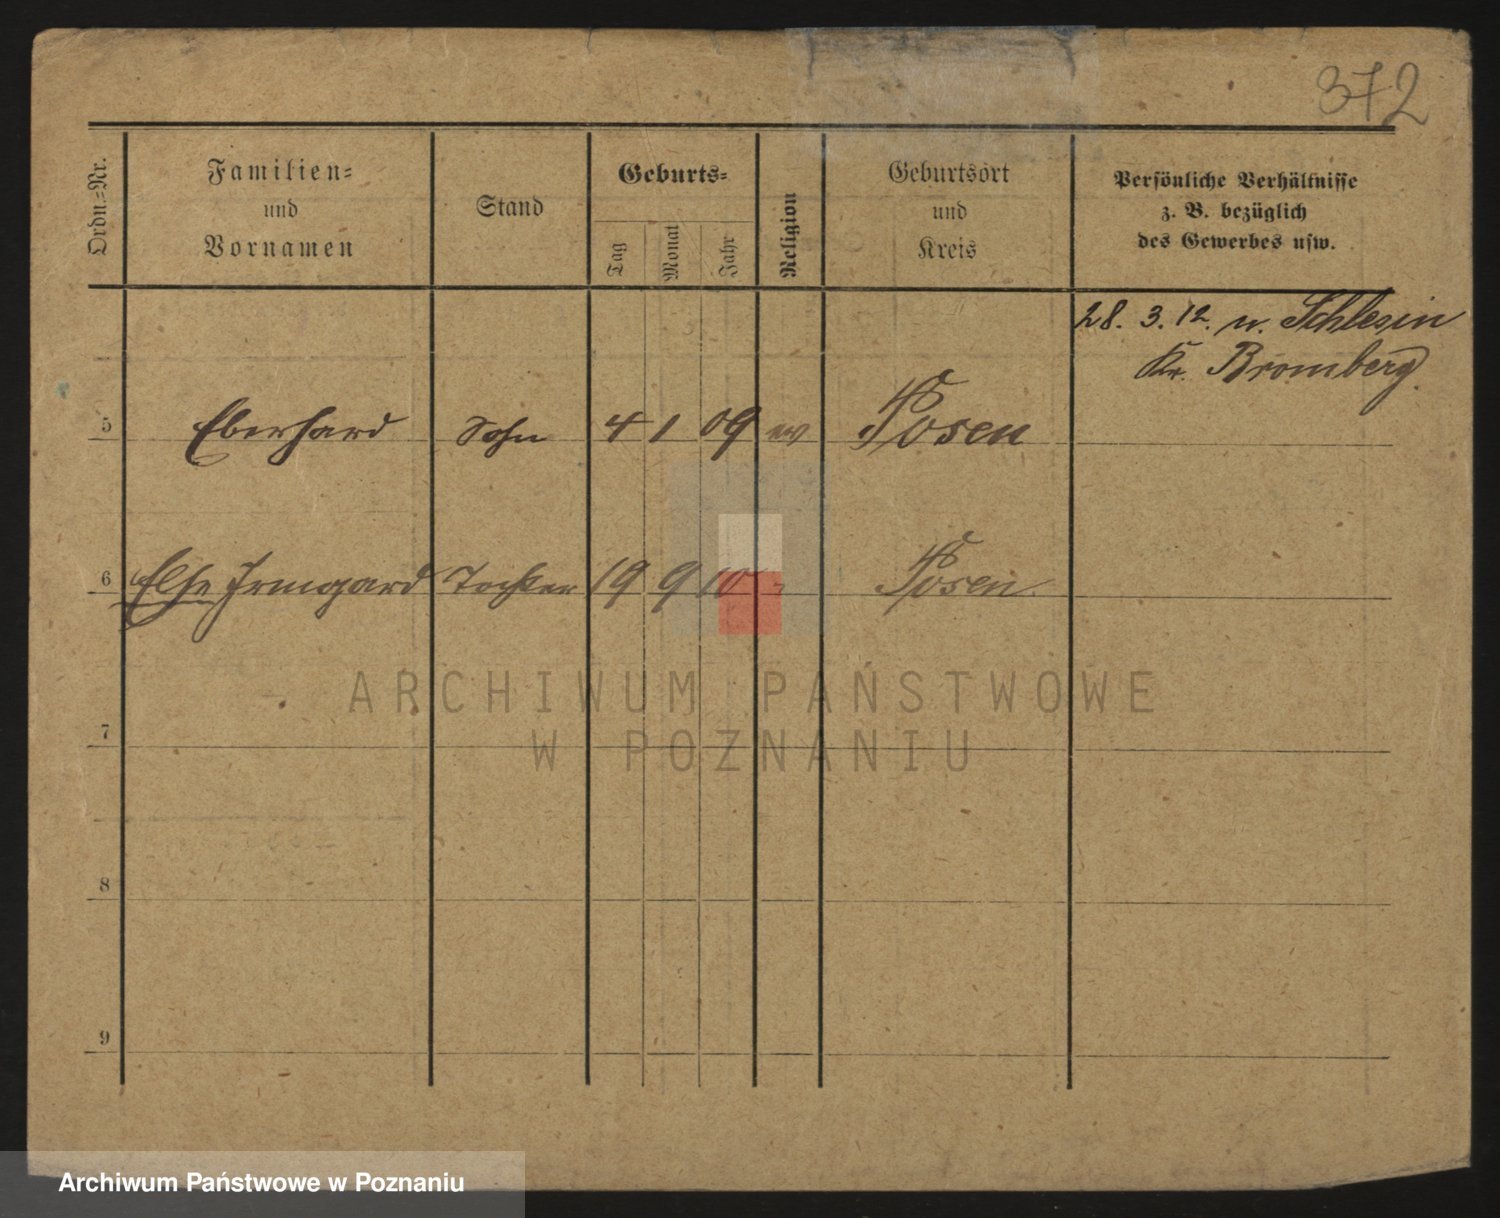 372
Ordn.-Nr.
Familien-
und
Vornamen
Stand
Geburts-
Tag
Monat
Jahr
Religion
Geburtsort
und
Kreis
Persönliche Verhältnisse
z. B. bezüglich
des Gewerbes usw.
28. 3. 12. n. Schlesin
Kr. Bromberg.
5 Eberhard Sohn 4 1 09 ev Posen
6 Else Irmgard Tochter 19 9 10 " Posen.
ARCHIWUM PAŃSTWOWE
W POZNANIU
7
8
9
Archiwum Państwowe w Poznaniu